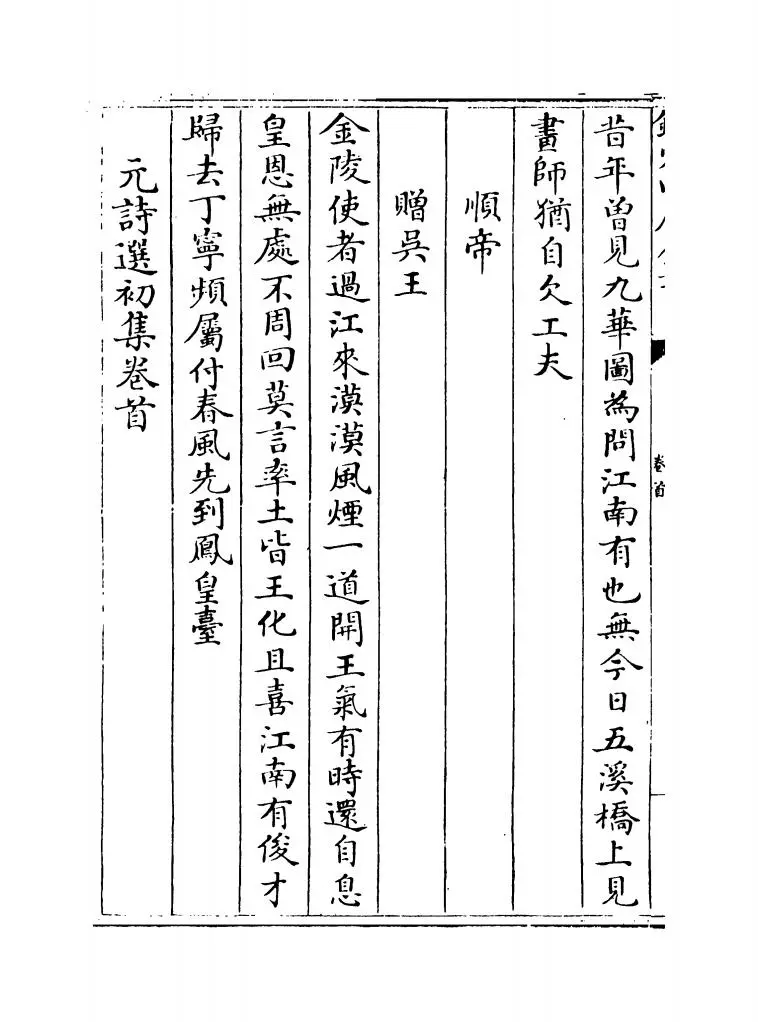 昔年曽見九華圖為問江南有也無今日五溪橋上見
畫師猶自欠工夫
順帝
贈吳王
金陵使者過江來漠漠風煙一道開王氣有時還自息
皇恩無處不周回莫言率土皆王化且喜江南有俊才
歸去丁寧頻屬付春風先到鳳皇臺
元詩選初集卷首
卷首